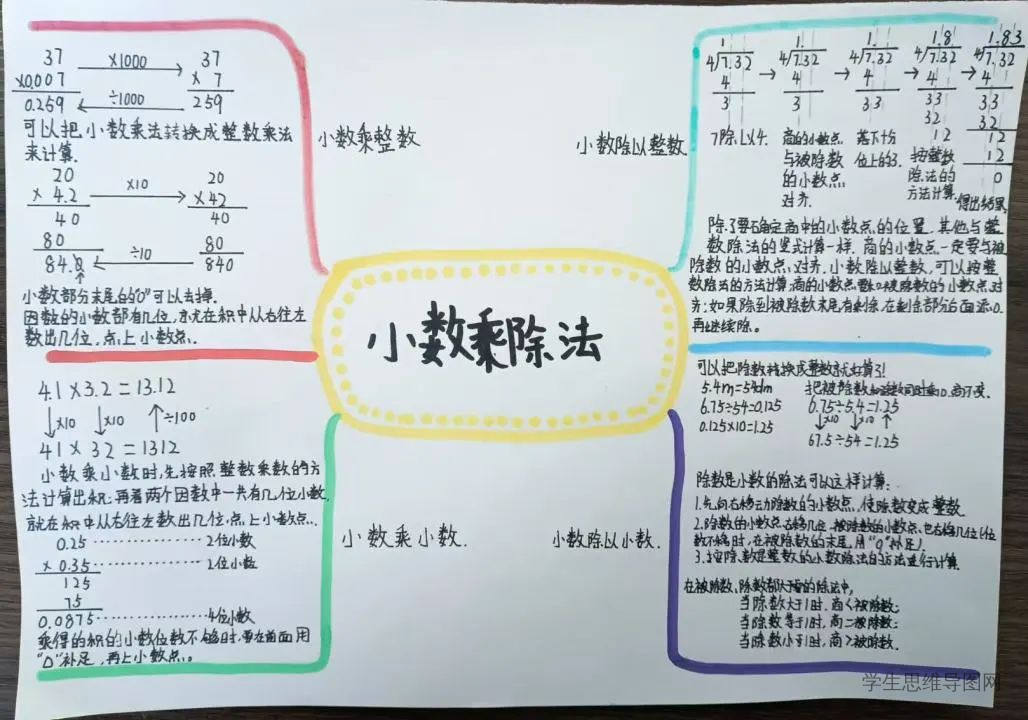 小数乘除法
小数乘整数
37 ×1000 37
×0.007 × 7
0.259 ÷1000 259
可以把小数乘法转换成整数乘法
来计算.
20 ×10 20
× 4.2 × 42
40 40
80 ÷10 80
84.0 840
小数部分末尾的"0"可以去掉.
因数的小数部有几位,就在积中从右往左
数出几位,点上小数点.
小数乘小数.
4.1 × 3.2 = 13.12
↓×10 ↓×10 ↑÷100
41 × 32 = 1312
小数乘小数时,先按照整数乘数的方
法计算出积;再看两个因数中一共有几位小数,
就在积中从右往左数出几位,点上小数点..
0.25 2位小数
× 0.35 2位小数
125
75
0.0875 4位小数
乘得的积的小数位数不够时,要在前面用
"0"补足,再上小数点。
小数除以整数
1 1. 1. 1.8 1.83
4/7.32 → 4/7.32 → 4/7.32 → 4/7.32 → 4/7.32
4 4 4 4 4
3 3 33 33 33
32 32
12 12
12
0
7除以4.
商的小数点
与被除数
的小数点
对齐.
落下十分
位上的3.
按整数
除法的
方法计算.
得出结果.
除了要确定商中的小数点的位置,其他与整
数除法的竖式计算一样.商的小数点一定要与被
除数的小数点对齐.小数除以整数,可以按整
数除法的方法计算;商的小数点要和被除数的小数点对
齐;如果除到被除数末尾有剩余,在剩余部分后面添0.
再继续除。
小数除以小数.
可以把除数转换成整数就好算了!
5.4m=54dm 把被除数和除数同时乘10.商不变.
6.75÷54=0.125 6.75÷5.4=1.25
0.125×10=1.25 ↓×10 ↓×10 ↑
67.5÷54=1.25
除数是小数的除法可以这样计算:
1.先向右移动除数的小数点,使除数变成整数
2.除数的小数点右移几位,被除数的小数点也右移几位(位
数不够时,在被除数的末尾用"0"补足).
3.按除数是整数的小数除法的方法进行计算.
在被除数、除数都大于零的除法中,
当除数大于1时,商<被除数;
当除数等于1时,商=被除数;
当除数小于1时,商>被除数.
学生思维导图网